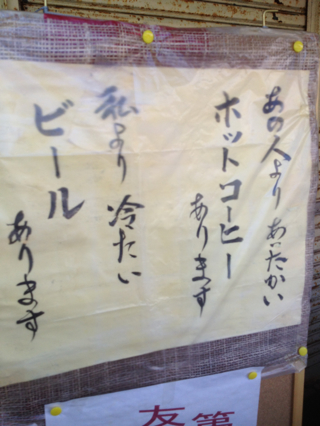 あの人より あったかい
ホットコーヒー
あります
私より 冷たい
ビール
あります
友筆